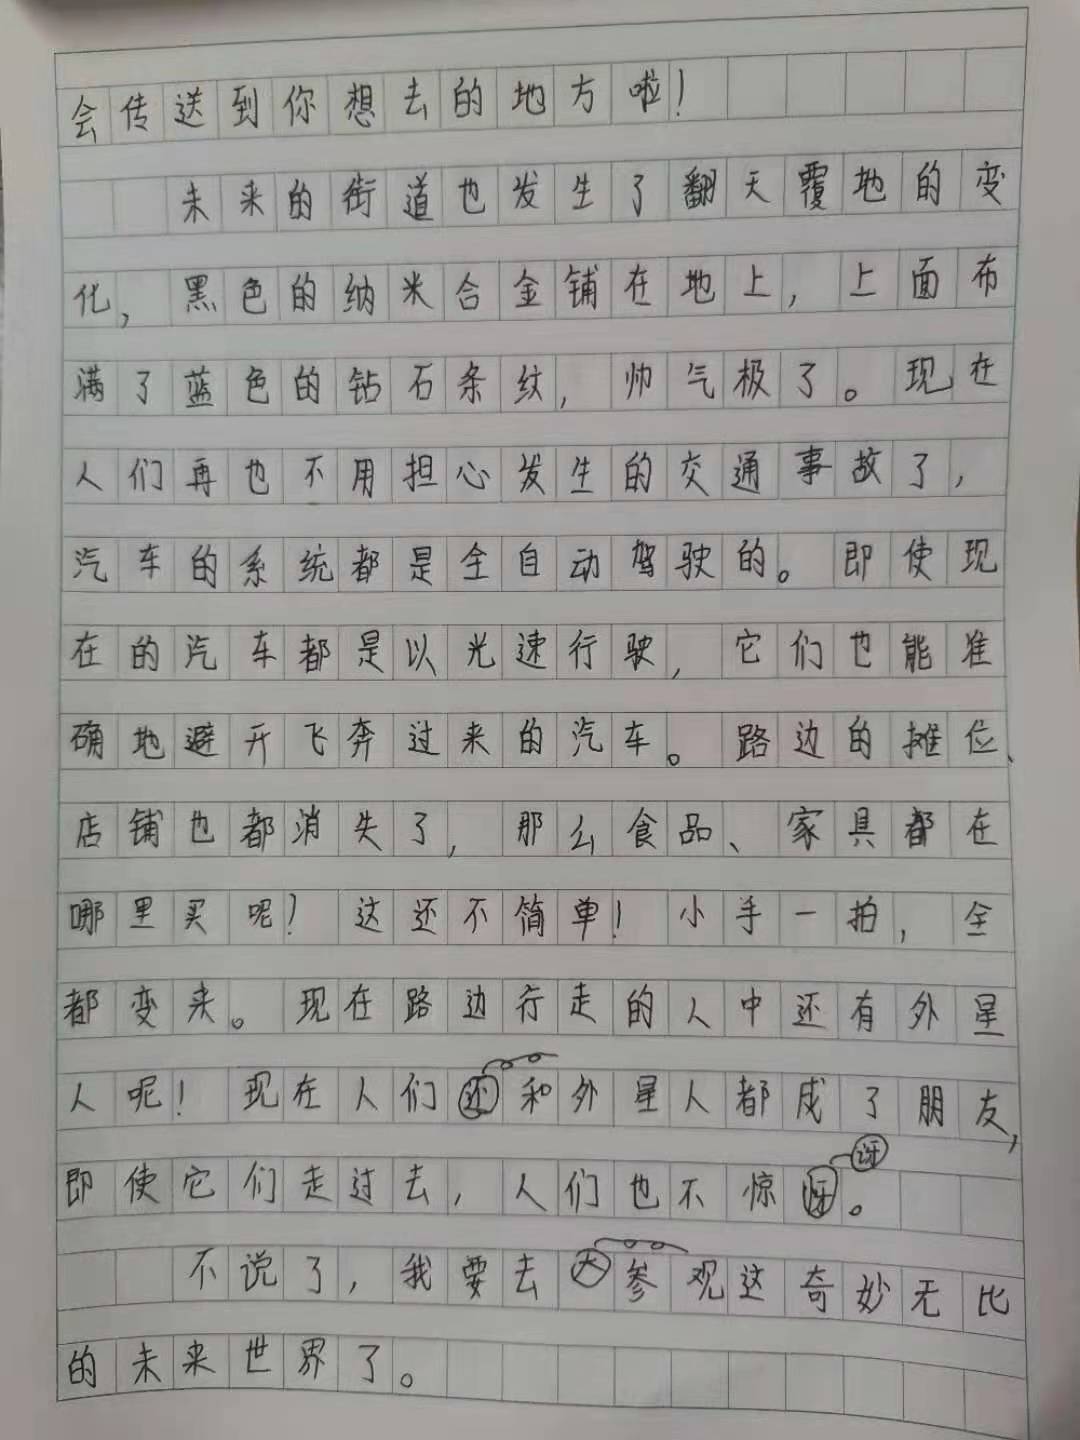 会传送到你想去的地方啦！
未来的街道也发生了翻天覆地的变
化，黑色的纳米合金铺在地上，上面布
满了蓝色的钻石条纹，帅气极了。现在
人们再也不用担心发生的交通事故了，
汽车的系统都是全自动驾驶的。即使现
在的汽车都是以光速行驶，它们也能准
确地避开飞奔过来的汽车。路边的摊位、
店铺也都消失了，那么食品、家具都在
哪里买呢？这还不简单！小手一拍，全
都变来。现在路边行走的人中还有外星
人呢！现在人们还和外星人都成了朋友，
讶
即使它们走过去，人们也不惊。
不说了，我要去大参观这奇妙无比
的未来世界了。